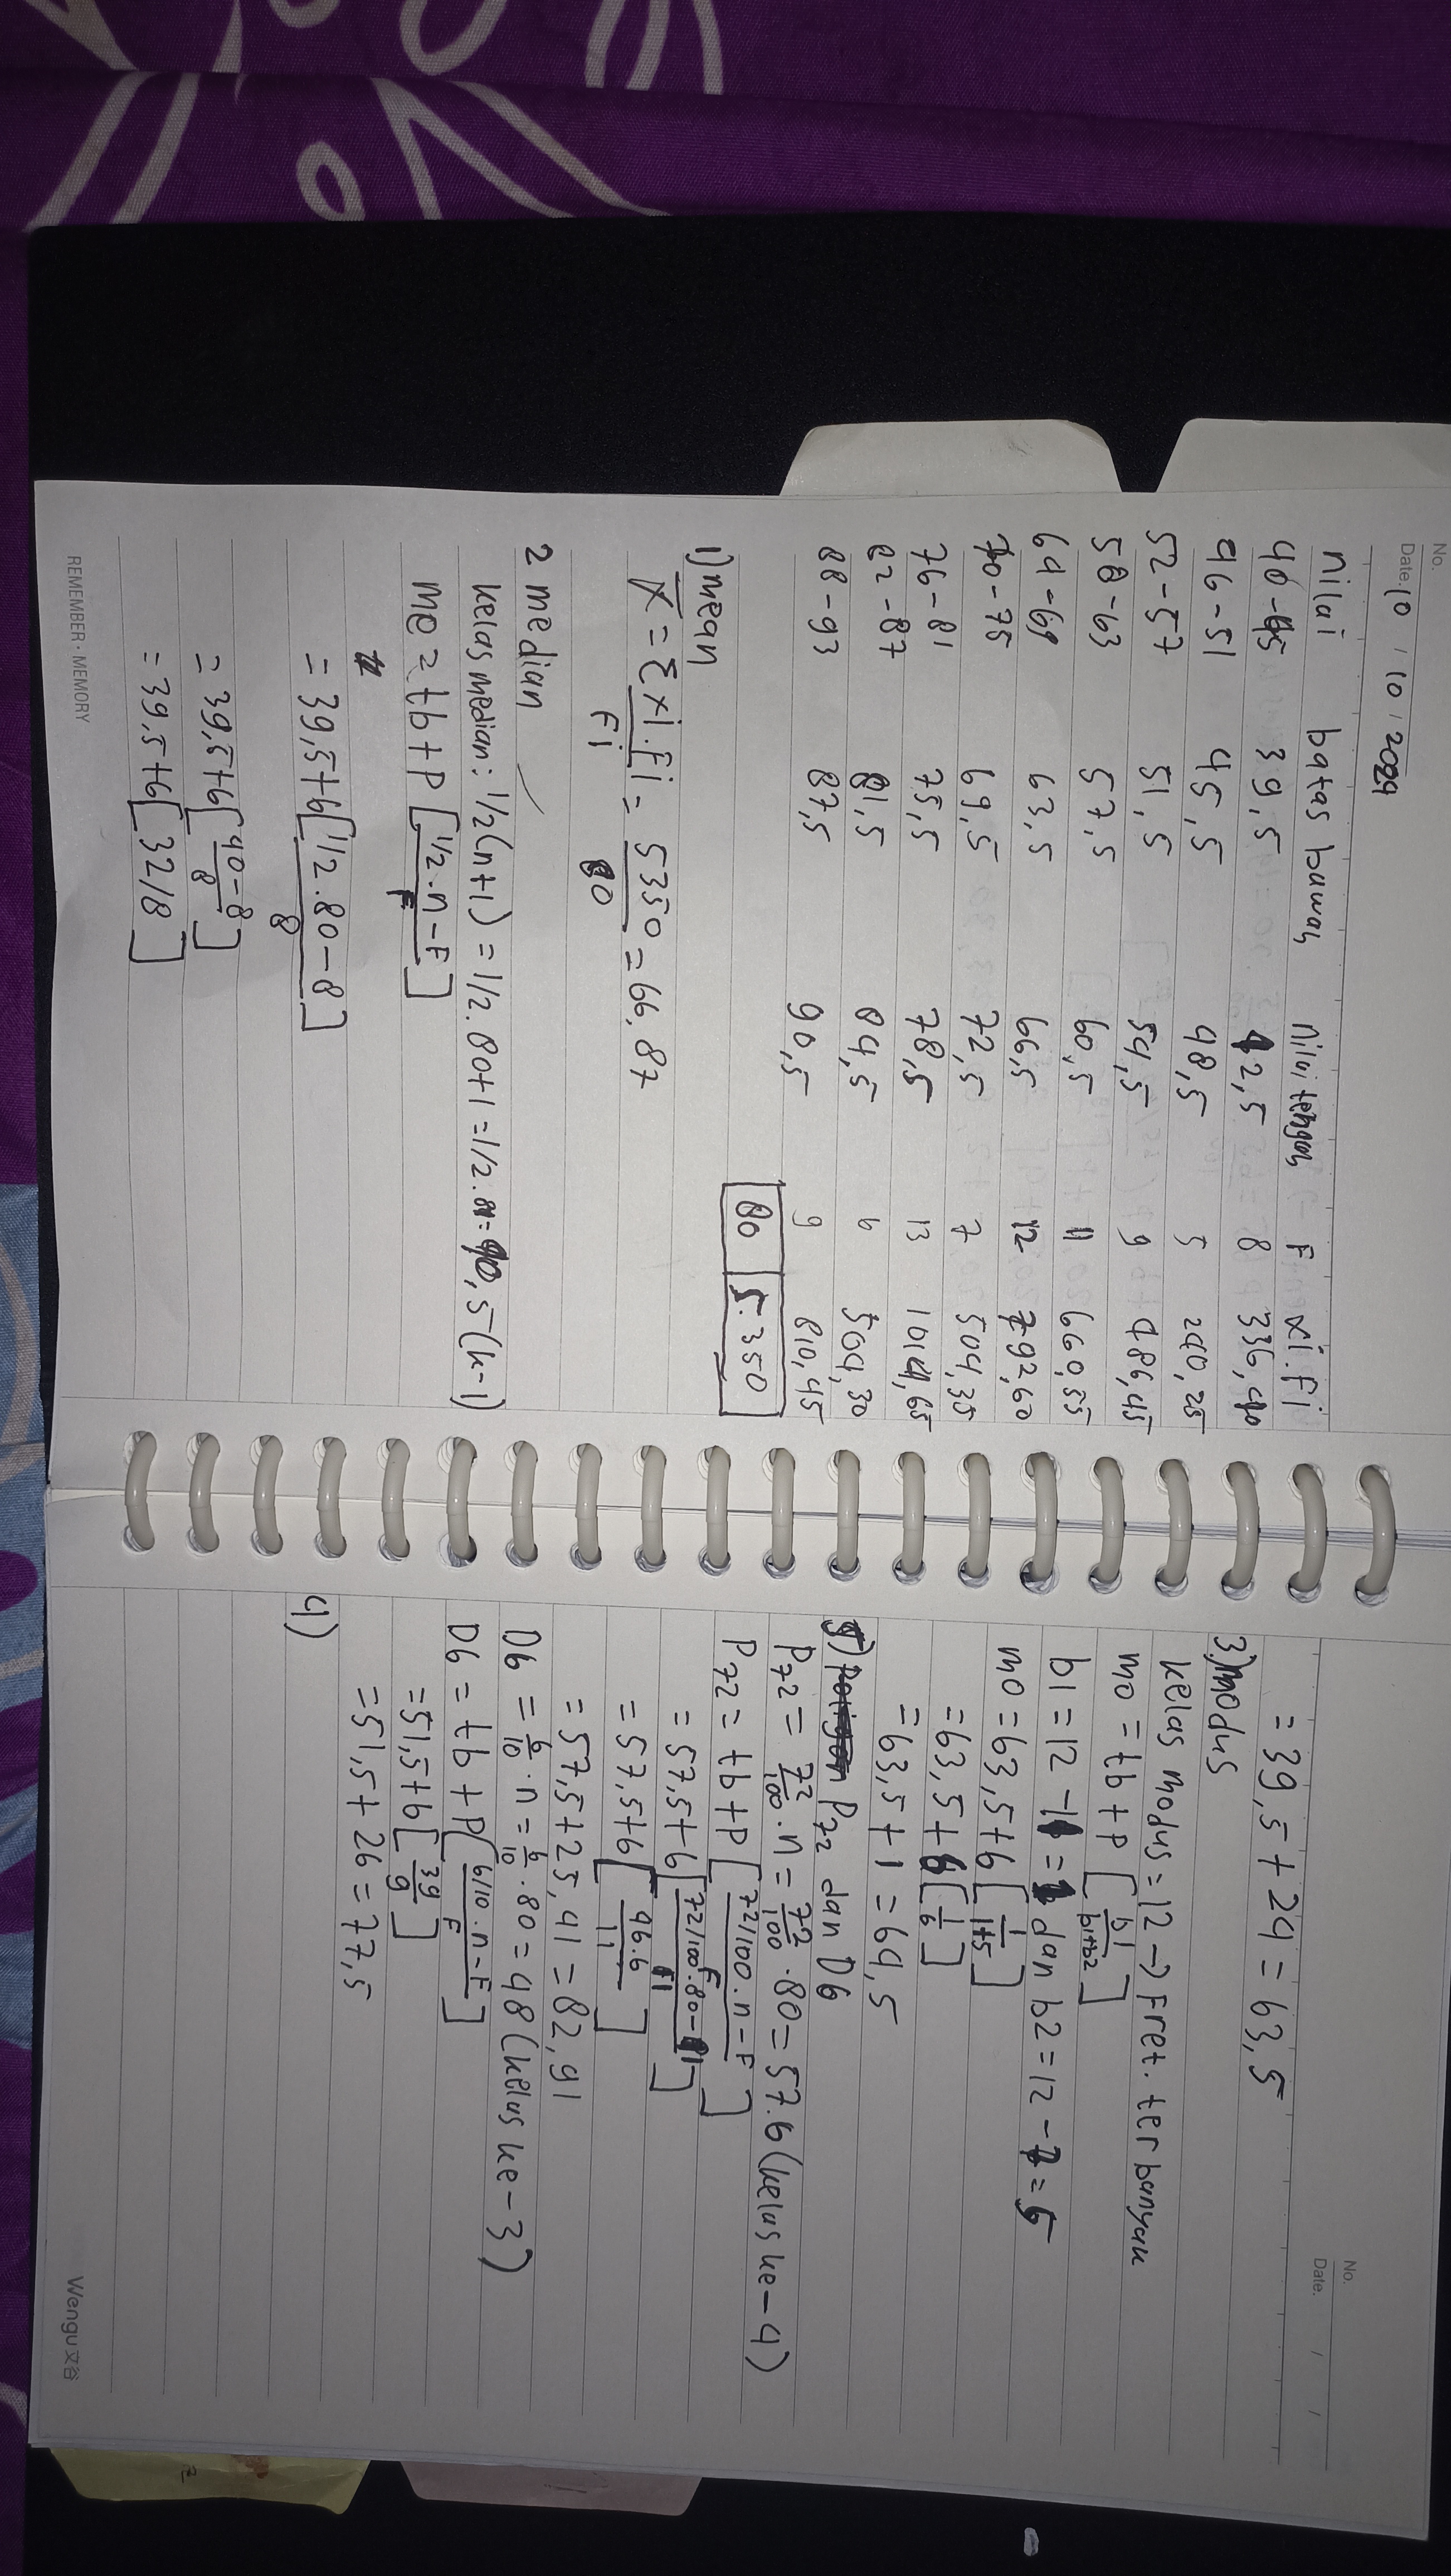 No.
Date. 10 / 10 / 2024
nilai batas bawah nilai tengah F xi.Fi
40-45 39,5 42,5 8 336,40
46-51 45,5 48,5 5 240,25
52-57 51,5 54,5 9 486,45
58-63 57,5 60,5 11 660,55
64-69 63,5 66,5 12 792,60
70-75 69,5 72,5 7 504,35
76-81 75,5 78,5 13 1014,65
82-87 81,5 84,5 6 504,30
88-93 87,5 90,5 9 810,45
80 5.350
1) mean
X = Σxi.Fi = 5350 = 66,87
Fi 80
2 median
kelas median: 1/2 (n+1) = 1/2.80+1 = 1/2.81=40,5 (k-1)
me = tb + P [1/2.n-F]
F
= 39,5+6 [1/2.80-8]
8
= 39,5+6 [40-8]
8
= 39,5+6 [32/8]
REMEMBER · MEMORY
No.
Date. / /
= 39,5 + 24 = 63,5
3) modus
kelas modus = 12 -> Frek. terbanyak
mo = tb + P [b1]
b1+b2
b1 = 12 - 11 = 1 dan b2 = 12 - 7 = 5
mo = 63,5+6 [1]
1+5
= 63,5 + 6 [1]
6
= 63,5 + 1 = 64,5
5) P72 dan D6
P72 = 72/100 . n = 72/100 . 80 = 57.6 (kelas ke-4)
P72 = tb + P [72/100.n-F]
F
= 57,5+6 [72/100.80-11]
11
= 57,5+6 [46.6]
11
= 57,5 + 25,41 = 82,91
D6 = 6/10 . n = 6/10 . 80 = 48 (kelas ke-3)
D6 = tb + P [6/10.n-F]
F
= 51,5+6 [39]
9
= 51,5 + 26 = 77,5
4)
Wengu 文谷